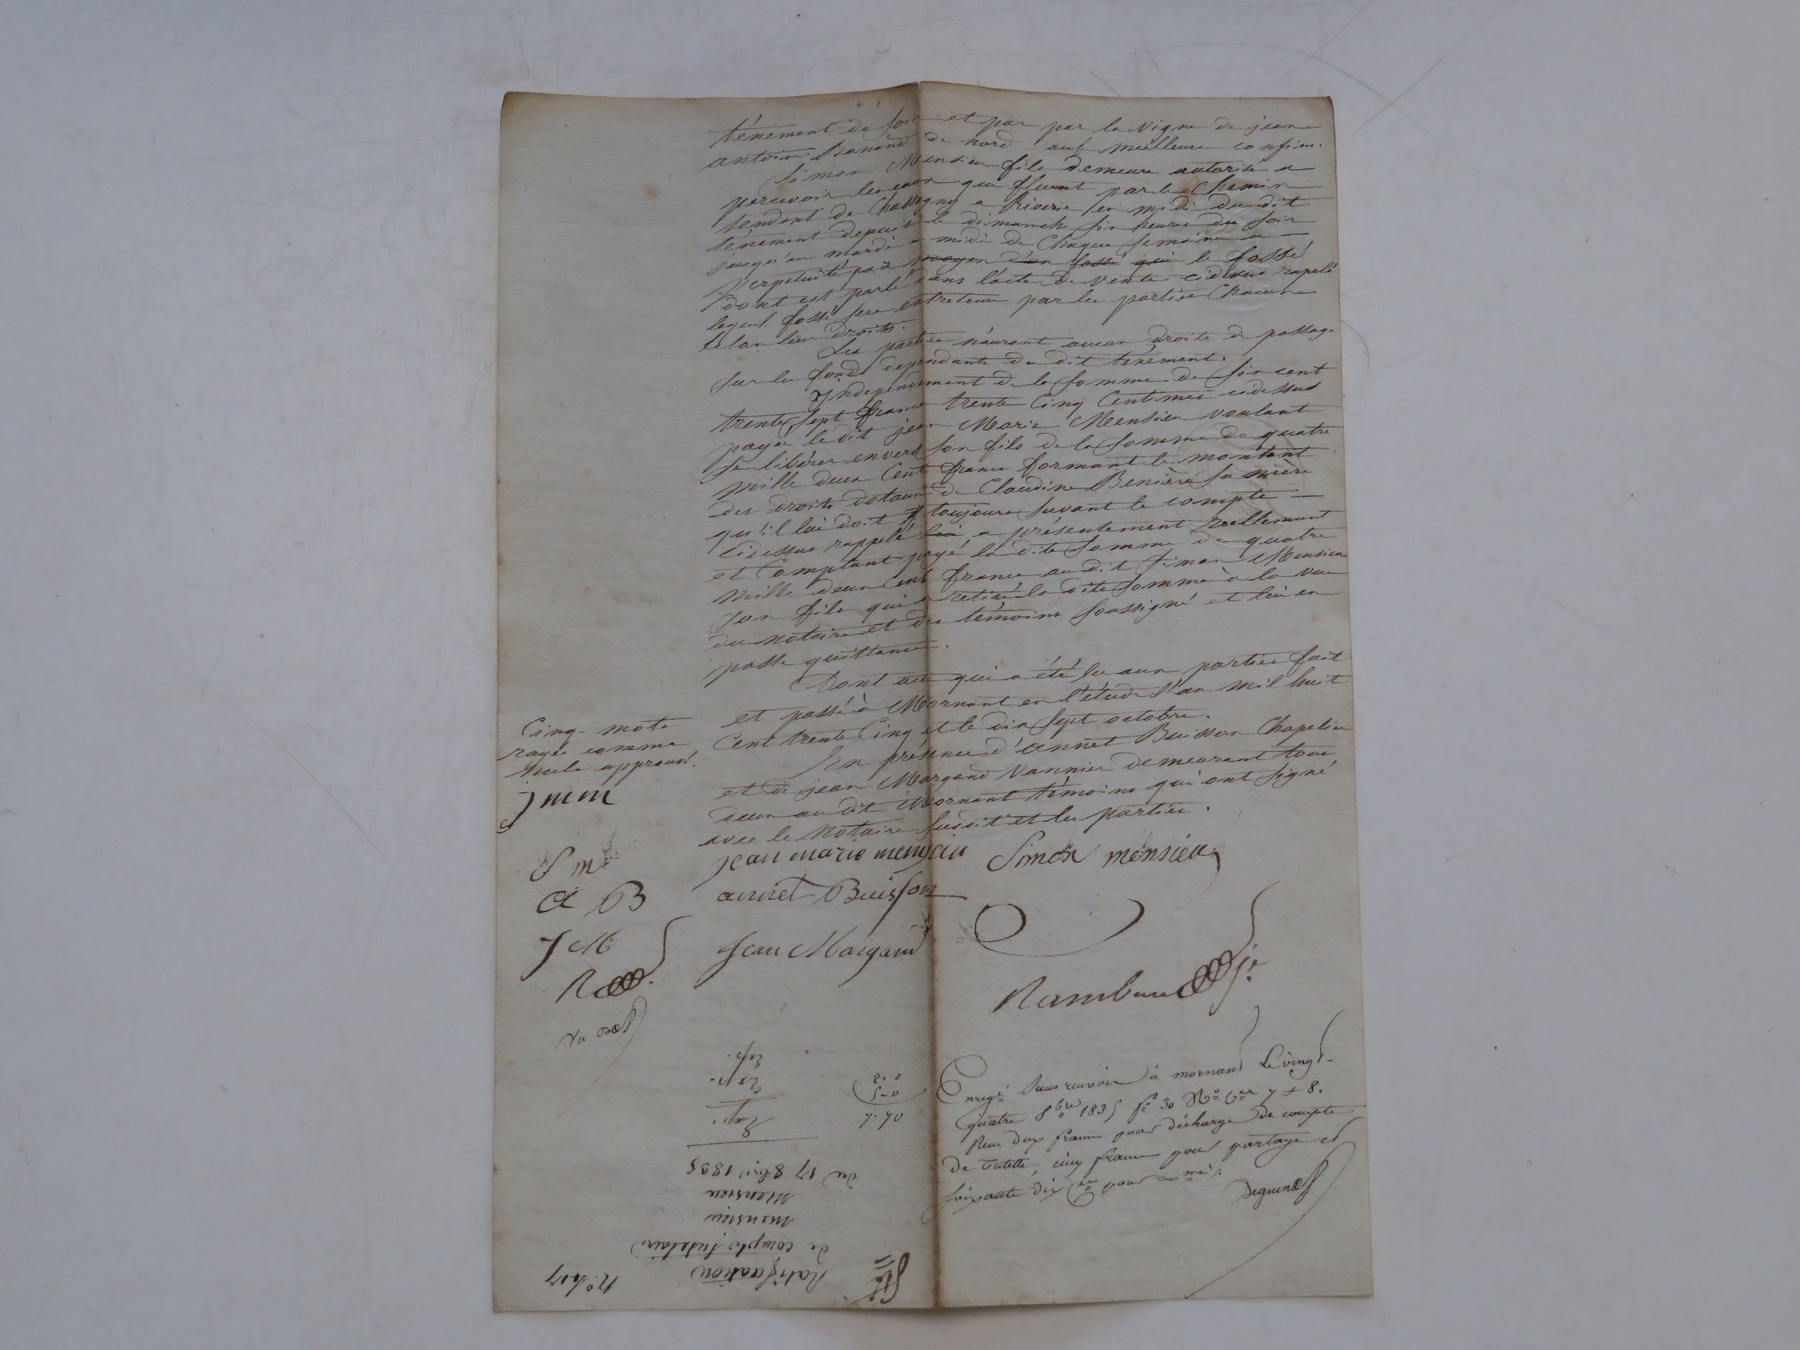 ténement de soir et par par la vigne de jean
antoine Bonand de nord sauf meilleurs confins.
Simon Mensieu fils demeure autorisé a
percevoir les eaux qui fluent par le chemin
tendant de Chassagny a Riverie en midi du dit
ténement depuis le dimanche six heures du soir
jusqu'au mardi a midi de chaque semaine a
perpétuité par moyen d'un fossé qui le fossé
dont est parlé dans l'acte de vente cidessus rapelé
lequel fossé sera entretenu par les parties chacune
selon leur droits.
Les parties n'auront aucun droits de passage
sur les fonds dependants du dit ténement.
Independament de la somme de six cent
trente sept francs trente cinq centimes cidessus
payée le dit jean Marie Mensieu voulant
se libérer envers son fils de la somme de quatre
mille deux cent francs formant le montant
des droits dotaux de Claudine Benière sa mère
qu'il lui doit toujours suivant le compte
cidessus rappelé lui a présentement réellement
et comptant payé la dite somme de quatre
mille deux cent francs au dit Simon Mensieu
son fils qui a retiré la dite somme à la vue
du notaire et des témoins soussigné et lui en
passe quittance.
Dont acte qui a été lu aux parties fait
et passé à Mornant en l'étude l'an mil huit
cent trente cinq et le dix sept octobre.
En présence d'annet Buisson Chapelier
et de jean Margand Vannier demeurant tous
deux au dit Mornant témoins qui ont signé
avec le notaire susdit et les parties.
Cinq mots
rayés comme
nuls approuvé.
J m m
S m
A B
J M
R
jean marie mensieu Simon mensieu
annet Buisson
Jean Margand
Rambaud
Enregé sans renvoi à mornant Le vingt
quatre 8bre 1835 fo 30 Ro Cee 7 et 8.
Reçu dix francs pour décharge de compte
de tutelle, cinq francs pour partage et
soixante dix ces pour
Exp.
Exp.
Exp.
du 17 8bre 1835
Mensieu
mensieu
de compte tutelaire
Ratification
No 417